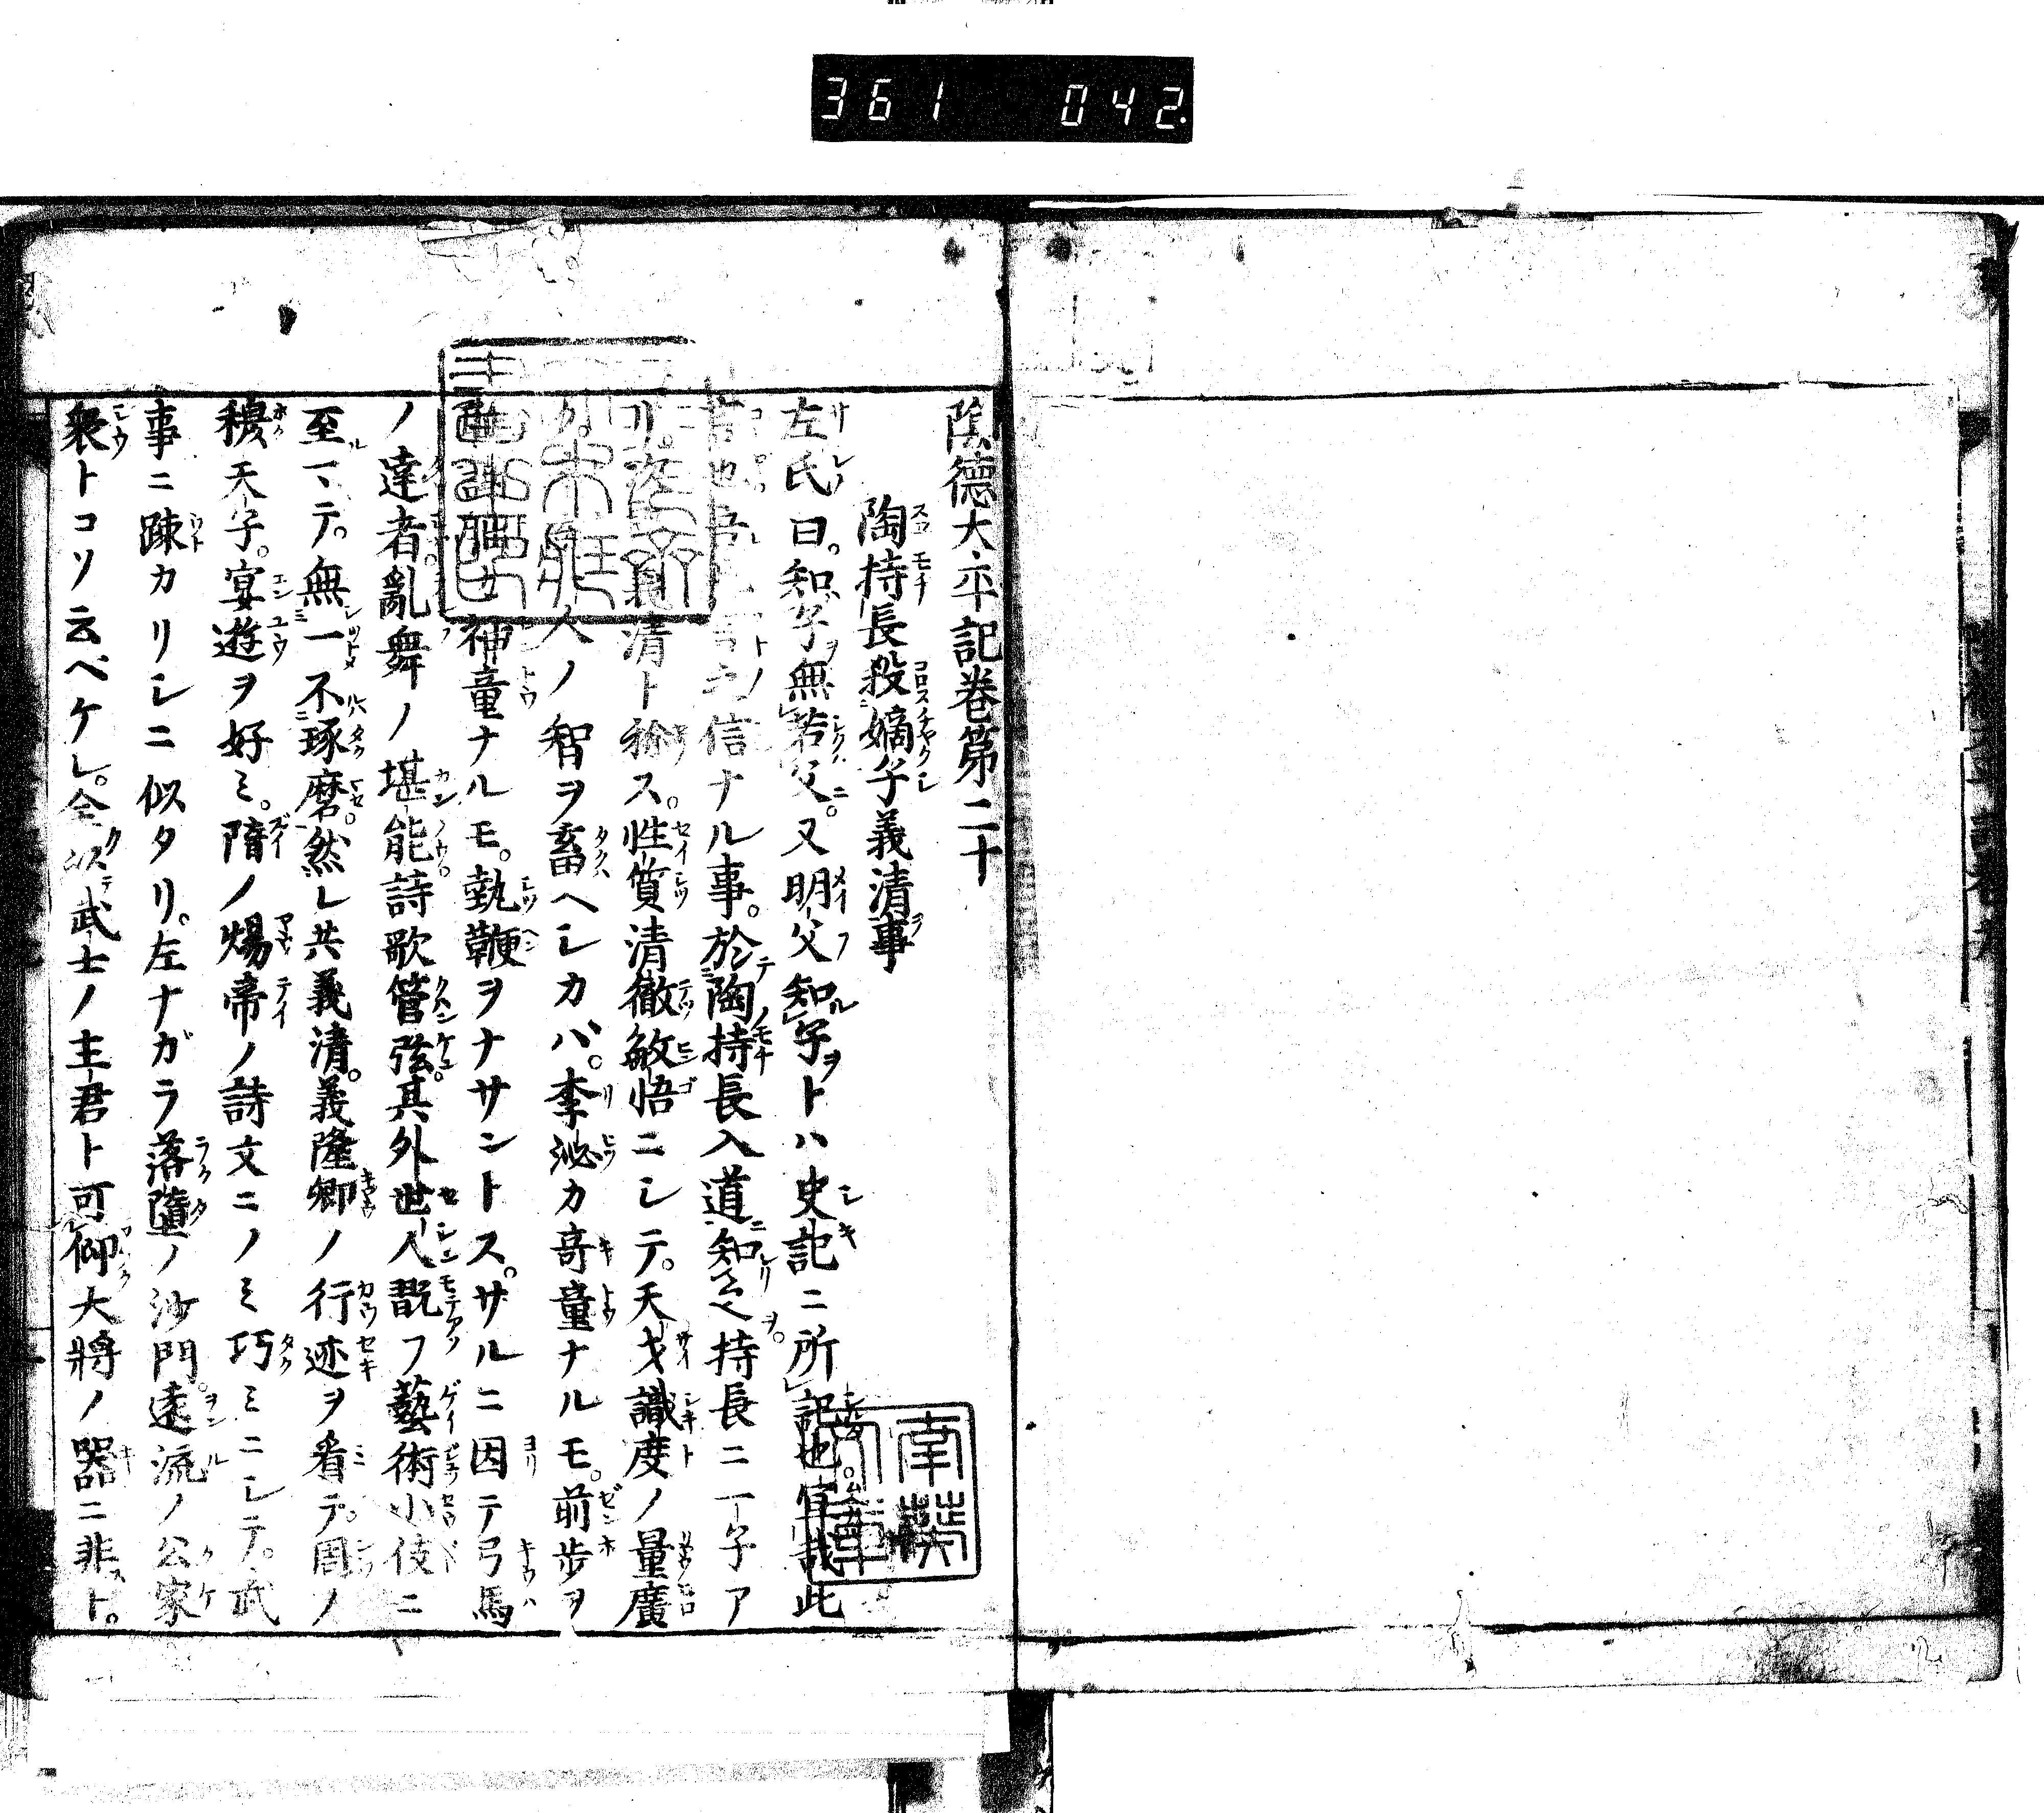 361 042.
陰德太平記卷第二十
陶持長殺嫡子義清事
左氏曰。知子無若父。又明父知子ヲトハ史記ニ所記也。宜哉此
言也。信ナル事。於陶持長入道知之。持長ニ一子ア
リ。義清ト称ス。性質清徹敏悟ニシテ。天才識度ノ量廣
ク。人ノ智ヲ畜ヘシカバ。李泌カ奇童ナルモ。前歩ヲ
神童ナルモ。執鞭ヲナサントス。サルニ因テ弓馬
ノ達者亂舞ノ堪能詩歌管弦。其外世人翫フ藝術小伎ニ
至マテ。無一不琢磨。然レ共義清。義隆卿ノ行迹ヲ看テ。周ノ
穆天子。宴遊ヲ好ミ。隋ノ煬帝ノ詩文ニノミ巧ミニシテ。武
事ニ疎カリシニ似タリ。左ナガラ落墮ノ沙門。遠流ノ公家
衆トコソ云ベケレ。全以武士ノ主君ト可仰大將ノ器ニ非ト。